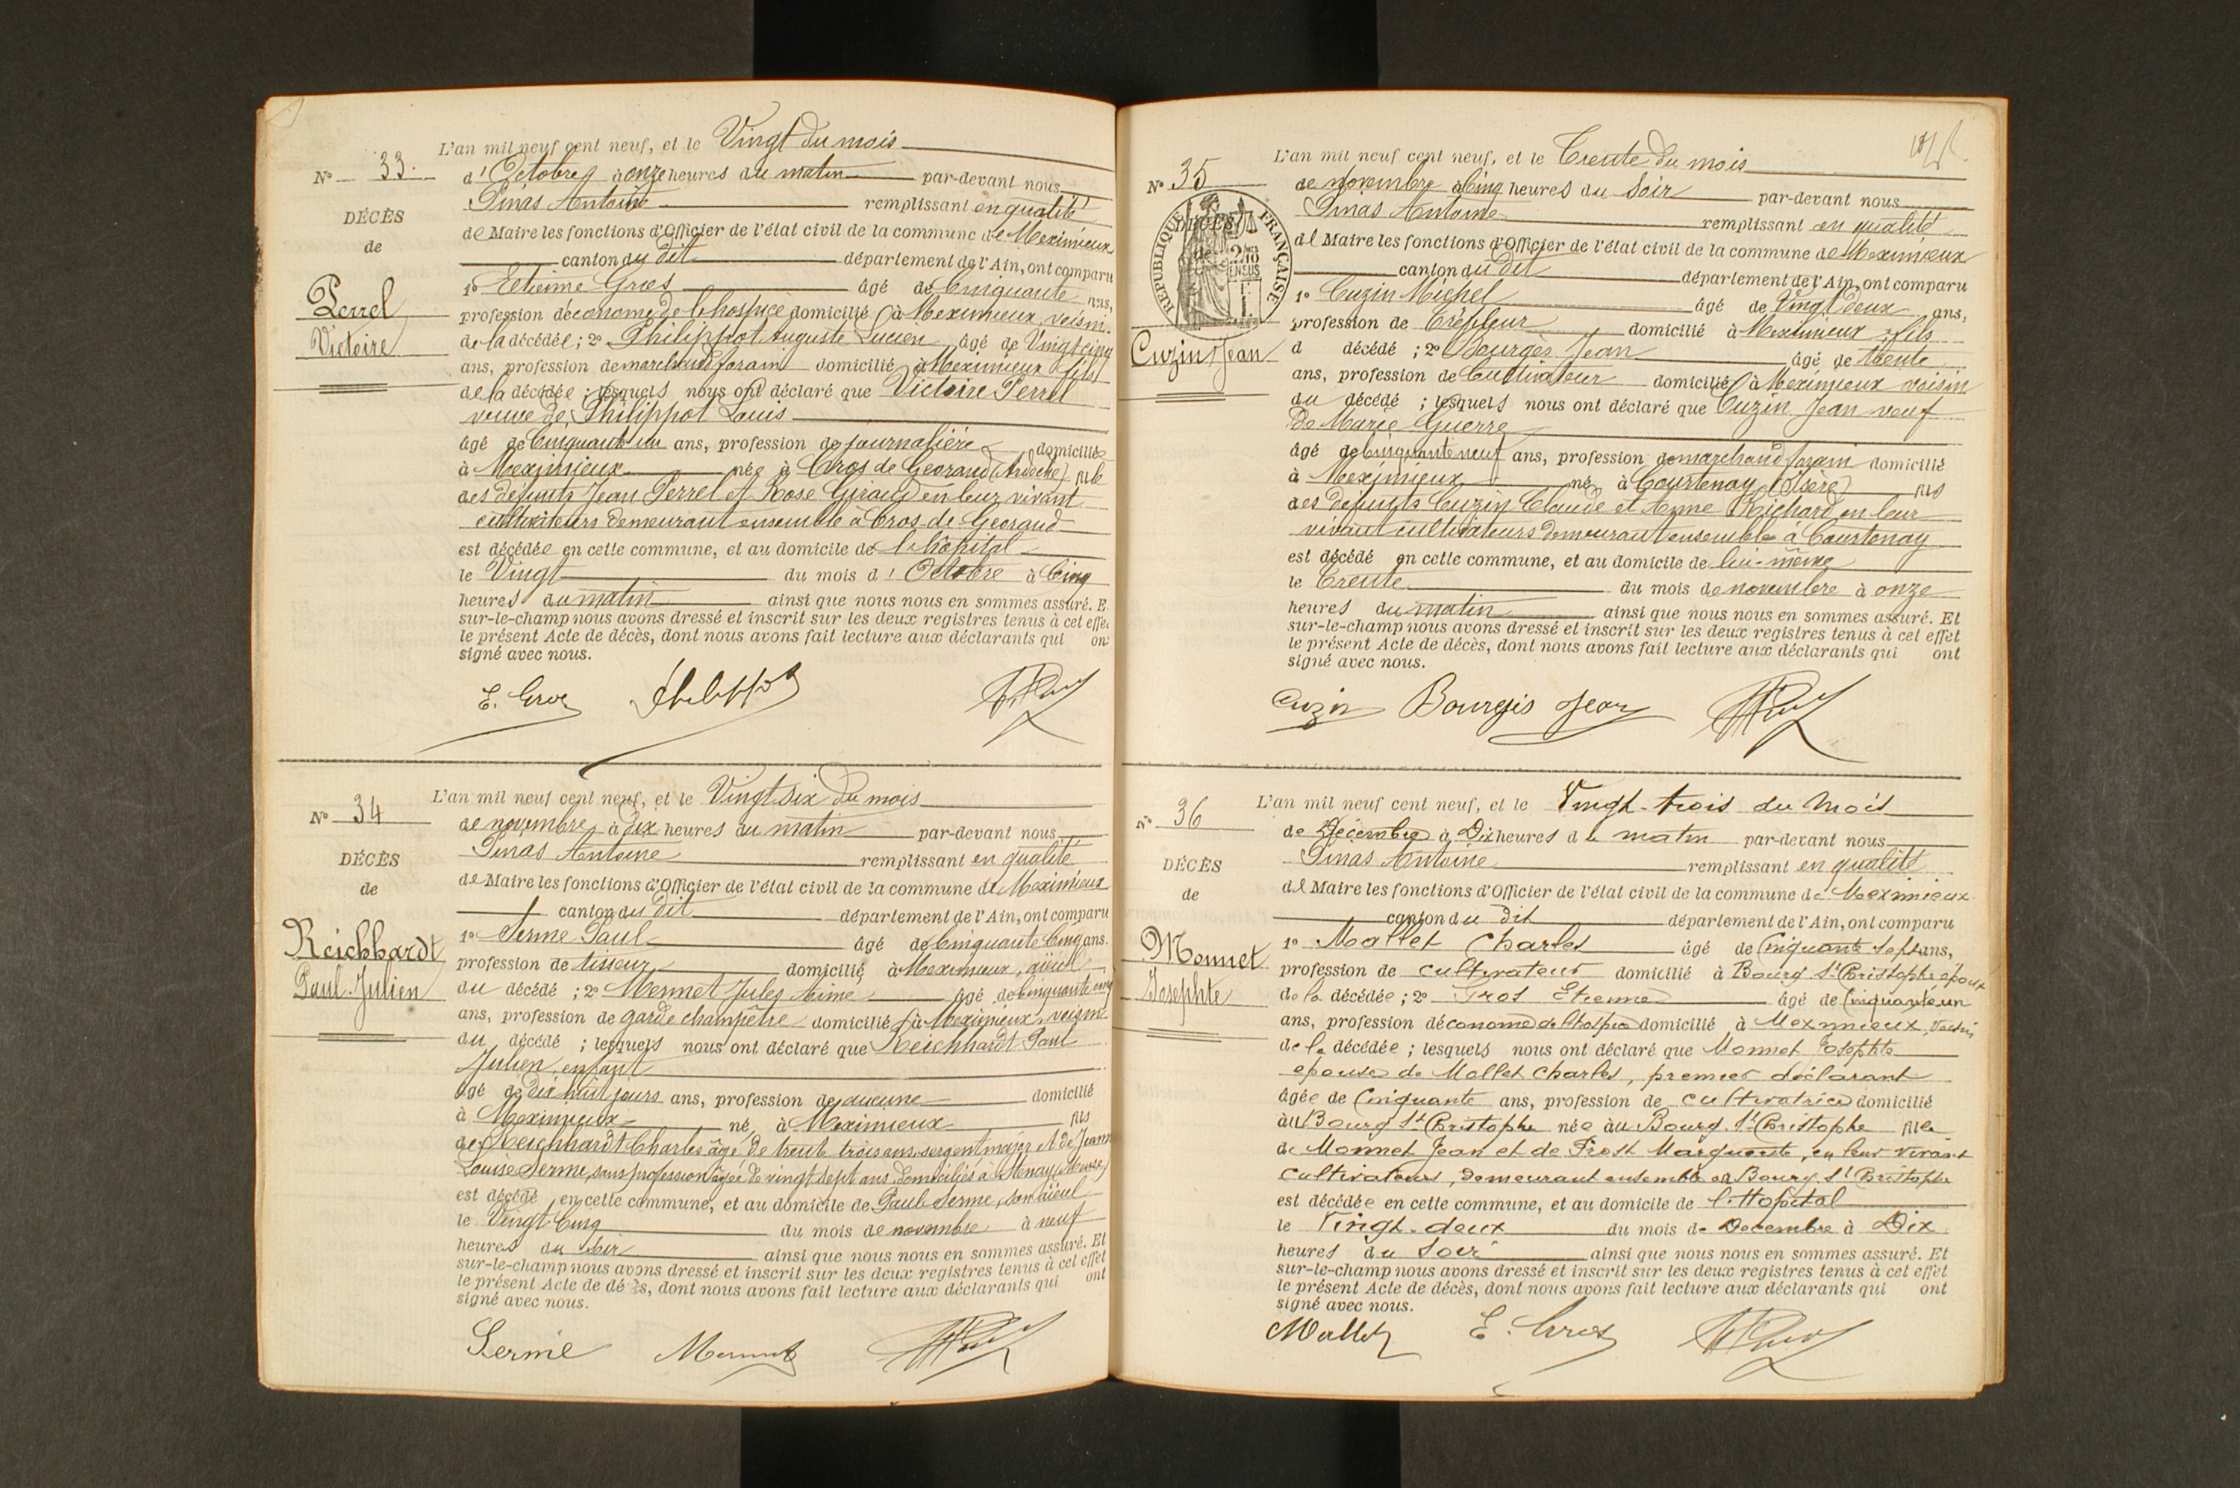 L'an mil neuf cent neuf, et le Vingt du mois
N° 33.
d'Octobre à onze heures du matin par-devant nous
Pinas Antoine remplissant en qualité
DÉCÈS
de Maire les fonctions d'Officier de l'état civil de la commune de Meximieux
de
canton du dit département de l'Ain, ont comparu
1° Etienne Gros âgé de Cinquante ans,
Perrel
profession d'économe de l'hospice domicilié à Meximieux, voisin
Victoire
de la décédée ; 2° Philippot Auguste Lucien âgé de Vingt cinq
ans, profession de marchand forain domicilié à Meximieux fils
de la décédée ; lesquels nous ont déclaré que Victoire Perrel
veuve de Philippot Louis
âgé de Cinquante un ans, profession de journalière domicilié
à Meximieux née à Cros de Georand (Ardèche) fille
des défunts Jean Perrel et Rose Giraud en leur vivant
cultivateurs demeurant ensemble à Cros-de-Georand
est décédée en cette commune, et au domicile de l'hôpital
le Vingt du mois d'Octobre à Cinq
heures du matin ainsi que nous nous en sommes assuré. E
sur-le-champ nous avons dressé et inscrit sur les deux registres tenus à cet effe
le présent Acte de décès, dont nous avons fait lecture aux déclarants qui on
signé avec nous.
E. Gros Philippot
L'an mil neuf cent neuf, et le Vingt six du mois
N° 34
de novembre à dix heures du matin par-devant nous
Pinas Antoine remplissant en qualité
DÉCÈS
de Maire les fonctions d'Officier de l'état civil de la commune de Meximieux
de
canton du dit département de l'Ain, ont comparu
Reichhardt
1° Serme Paul âgé de Cinquante Cinq ans.
profession de tisseur domicilié à Meximieux, aïeul
Paul-Julien
du décédé ; 2° Monnet Jules Aimé âgé de Cinquante cinq
ans, profession de garde champêtre domicilié à Meximieux voisin
du décédé ; lesquels nous ont déclaré que Reichhardt Paul
Julien, enfant
âgé de dix huit jours ans, profession de aucune domicilié
à Meximieux né à Meximieux fils
de Reichhardt Charles âgé de trente trois ans sergent major et de Jeanne
Louise Serme, sans profession âgée de vingt sept ans domiciliés à (Meuse)
est décédé en cette commune, et au domicile de Paul Serme, son aïeul
le Vingt Cinq du mois de novembre à neuf
heures du soir ainsi que nous nous en sommes assuré. Et
sur-le-champ nous avons dressé et inscrit sur les deux registres tenus à cet effet
le présent Acte de décès, dont nous avons fait lecture aux déclarants qui ont
signé avec nous.
Serme Monnet
L'an mil neuf cent neuf, et le Trente du mois
N° 35
de novembre à Cinq heures du Soir par-devant nous
Pinas Antoine remplissant en qualité
DÉCÈS
RÉPUBLIQUE FRANÇAISE
de Maire les fonctions d'Officier de l'état civil de la commune de Meximieux
de
2/10 EN SUS
canton du dit département de l'Ain, ont comparu
1° Cuzin Michel âgé de Vingt deux ans,
profession de Crépleur domicilié à Meximieux fils
Cuzin Jean
d décédé ; 2° Bourges Jean âgé de trente
ans, profession de Cultivateur domicilié à Meximieux voisin
du décédé ; lesquels nous ont déclaré que Cuzin Jean veuf
de Marie Guerre
âgé de Cinquante neuf ans, profession de marchand forain domicilié
à Meximieux né à Courtenay (Isère) fils
des défunts Cuzin Claude et Anne Richard en leur
vivant cultivateurs demeurant ensemble à Courtenay
est décédé en cette commune, et au domicile de lui-même
le Trente du mois de novembre à onze
heures du matin ainsi que nous nous en sommes assuré. Et
sur-le-champ nous avons dressé et inscrit sur les deux registres tenus à cet effet
le présent Acte de décès, dont nous avons fait lecture aux déclarants qui ont
signé avec nous.
Cuzin Bourgeis Jean
L'an mil neuf cent neuf, et le Vingt-trois du Mois
N° 36
de Décembre à Dix heures du matin par-devant nous
Pinas Antoine remplissant en qualité
DÉCÈS
de Maire les fonctions d'Officier de l'état civil de la commune de Meximieux
de
canton du dit département de l'Ain, ont comparu
Monnet
1° Mollet Charles âgé de Cinquante sept ans,
profession de cultivateur domicilié à Bourg St Christophe époux
Josephte
de la décédée ; 2° Gros Etienne âgé de Cinquante un
ans, profession d'économe de l'hospice domicilié à Meximieux, Voisin
de la décédée ; lesquels nous ont déclaré que Monnet Josephte
épouse de Mollet Charles, premier déclarant
âgée de Cinquante ans, profession de cultivatrice domicilié
au Bourg St Christophe née au Bourg St Christophe fille
de Monnet Jean et de Prost Marguerite, en leur vivant
cultivateurs, demeurant ensemble au Bourg St Christophe
est décédée en cette commune, et au domicile de l'Hopital
le Vingt-deux du mois de Décembre à Dix
heures du Soir ainsi que nous nous en sommes assuré. Et
sur-le-champ nous avons dressé et inscrit sur les deux registres tenus à cet effet
le présent Acte de décès, dont nous avons fait lecture aux déclarants qui ont
signé avec nous.
Mollet E. Gros